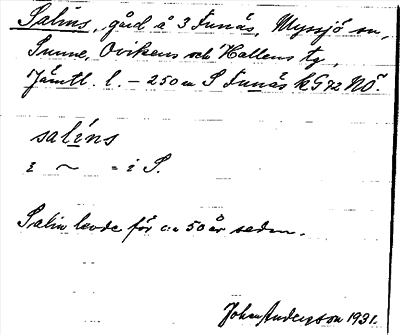 Salins, gård å 3 Funäs, Myssjö sn,
Sunne, Ovikens och Hallens tg,
Jämtl. l. – 250 m S Funäs k G72 NÖ.
salins
i ~ = i S.
Salin levde för c:a 50 år sedan.
Johan Anderson 1931.